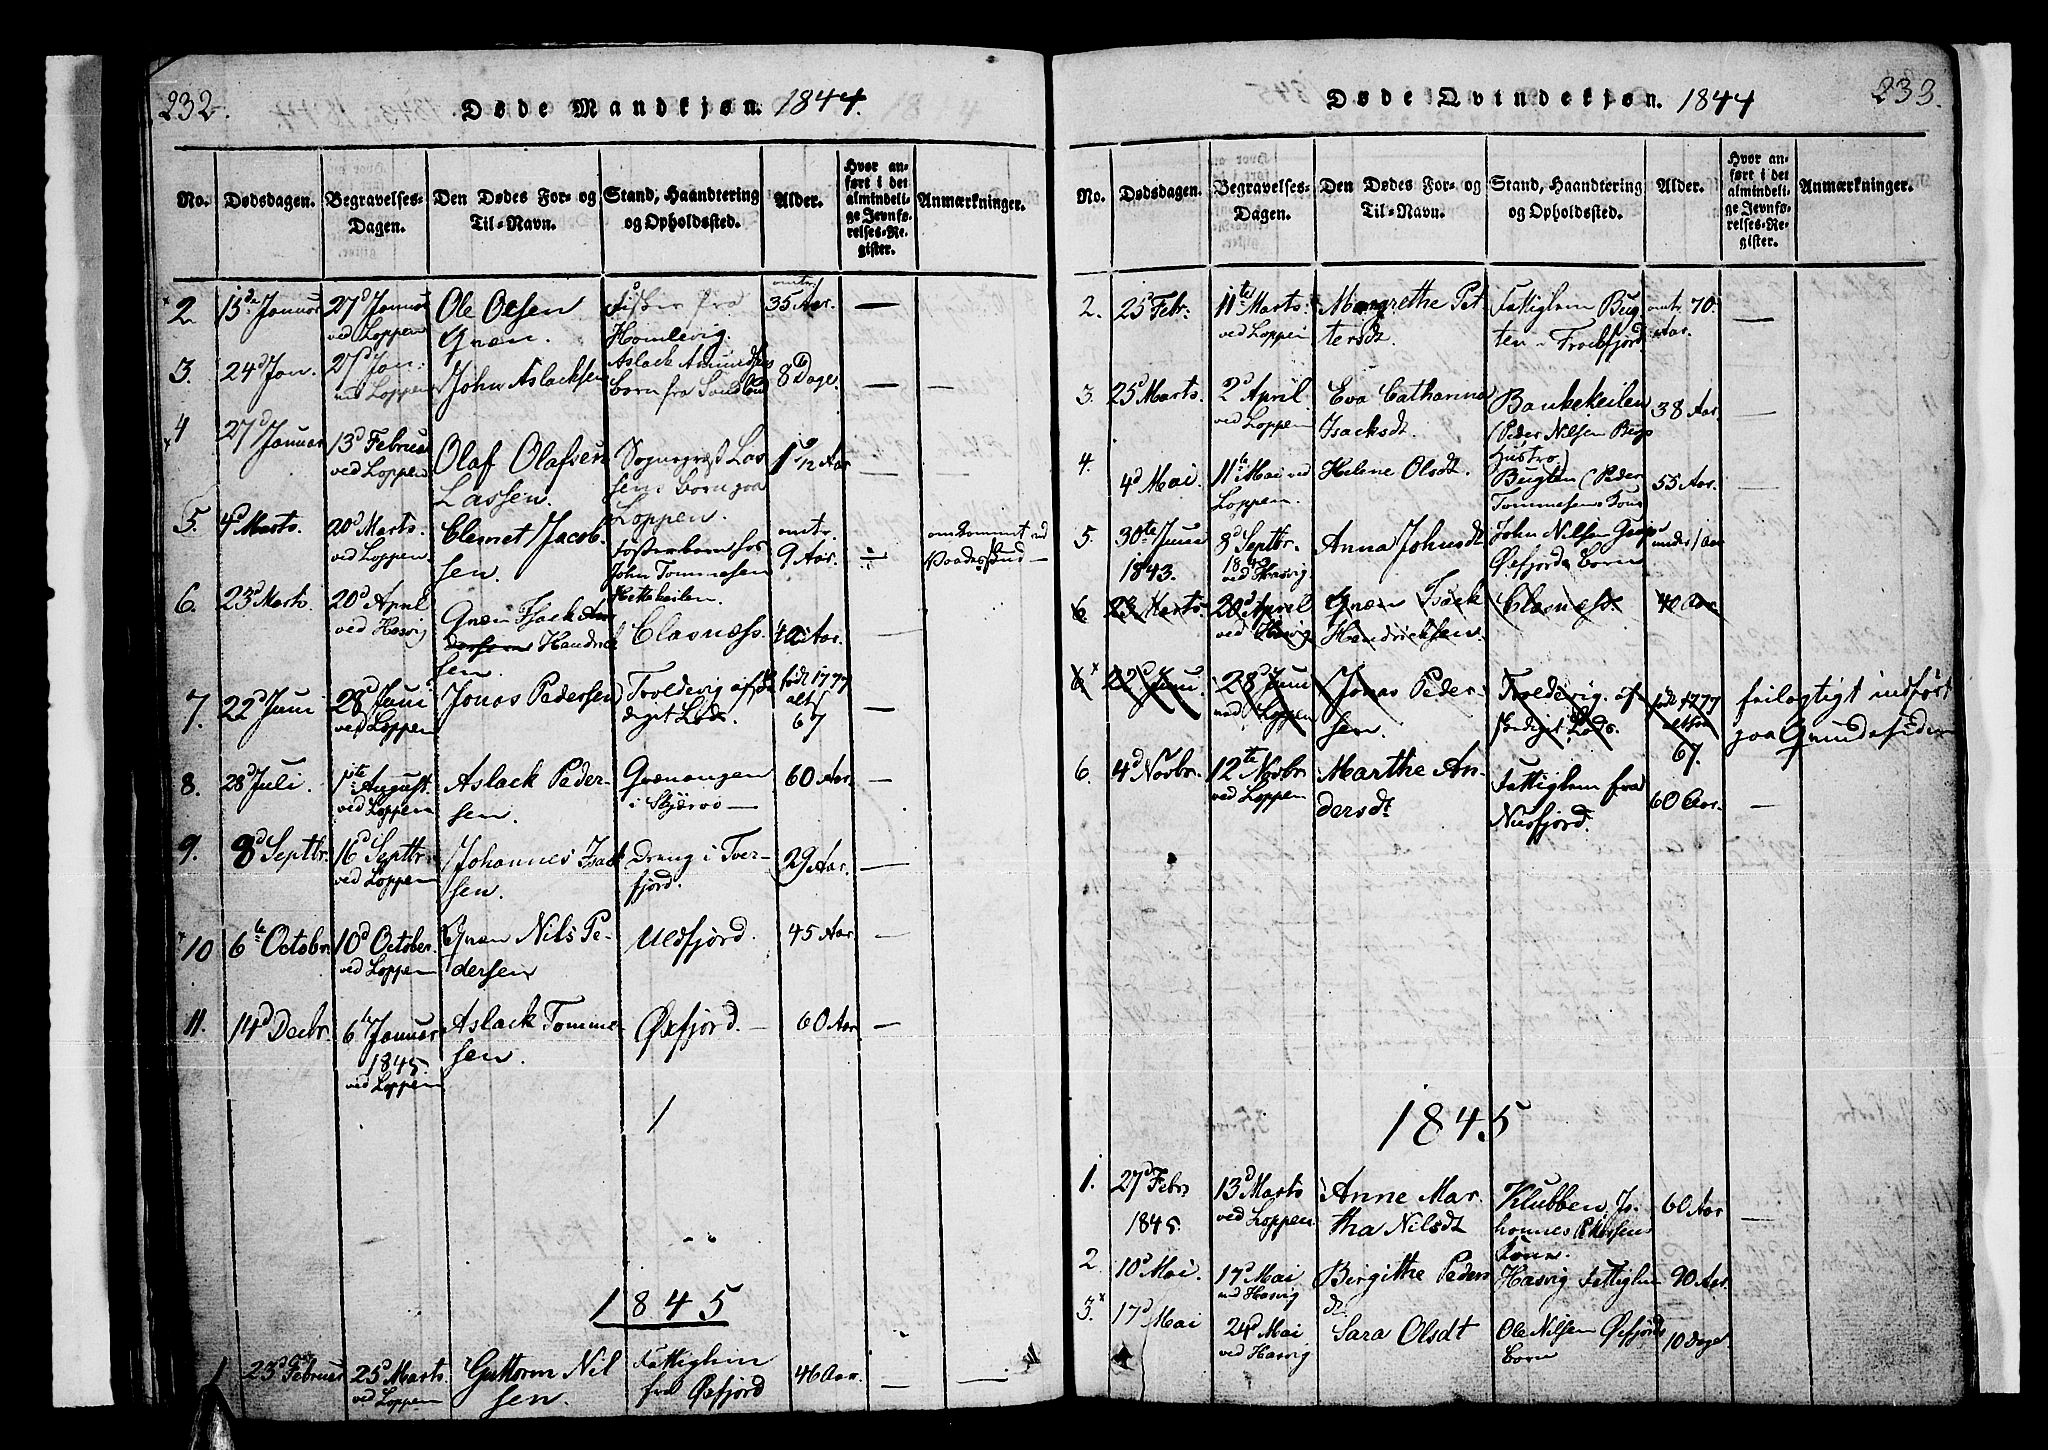 232.
Døde Mandkjøn. 1844.
No.
Dødsdagen.
Begravelses-Dagen.
Den Dødes For- og Til-Navn.
Stand, Haandtering og Opholdssted.
Alder.
Hvor anført i det almindelige Jevnførelses-Register.
Anmærkninger.
2. 15de Januar 27d Januar ved Loppen Ole Olsen Qvæn. Fisker fra Homlevig. omtr. 35 Aar. —
3. 24d Jan. 27d Jan: ved Loppen John Aslacksen Aslack Amundsens barn fra 8 Dage. — —
4 27d Januar 13d Februar ved Loppen Olaf Olafsen Lassen. Sognepræst Lassens barn paa Loppen. 1 9/12 Aar — —
5. 4d Marts. 20d Marts. ved Loppen Clemet Jacobsen. Fosterbarn hos John Tommesen omtr. 9 Aar. ÷ omkommet ved Vaadeskud —
6. 23d Marts. 20d April ved Hasvig Qvæn Isack Andersen Hendricksen Clasness. 40 Aar. —
7. 22d Juni 28d Juni ved Loppen Jonas Pedersen Troldevig afskediget Lods. født 1777 altsaa 67 —
8. 28d Juli. 1ste August. ved Loppen Aslack Pedersen. Qvænangen i Skjærvø — 60 Aar. —
9. 8d Septbr. 16d Septbr. ved Loppen Johannes Isacksen. Dreng i Tverfjord. 29 Aar. —
10 6te Octobr. 10d October. ved Loppen Qvæn Nils Pedersen Uldsfjord. 45 Aar. —
11. 14d Decbr. 6te Januar 1845. ved Loppen Aslack Tommesen. Øxfjord. — 60 Aar —
1845
1 23d Februar 25d Marts. ved Loppen Guttorm Nilsen. Fattiglem fra Øxfjord 46 Aar. — —
233.
Døde Qvindekjøn. 1844
No.
Dødsdagen.
Begravelses-Dagen.
Den Dødes For- og Til-Navn.
Stand, Haandtering og Opholdssted.
Alder.
Hvor anført i det almindelige Jevnførelses-Register.
Anmærkninger.
2. 25 Febr: 11te Marts. ved Loppen Margrethe Pettersdt. Fattiglem omtr. 70. Aar. —
3. 25d Marts. 2d April ved Loppen Eva Catharina Isacksdt. Bankekeilen (Peder Nilsen Bugs Hustro) 38 Aar. —
4. 4d Mai. 11te Mai ved Loppen. Helene Olsdt. Bugten (Peder Tommesens Kone 55 Aar. —
5. 30te Juni 1843. 8d Septbr. 1843 ved Hasvig. Anna Johnsdt John Nilsen Øxfjords barn under 1 Aar
6 23 Marts. 20d April ved Hasvig Qvæn Isack Hendricksen. Clasness. 40 Aar
6 22d Juni 28d Juni ved Loppen Jonas Pedersen. Troldevig. afskediget Lods. født 1777 altsaa 67. feilagtigt indført paa Qvindesiden
6. 4d Novbr. 12te Novbr ved Loppen Marthe Andersdt Fattiglem fra Nusfjord. 60 Aar. —
1845
1. 27d Febr. 1845. 13d Marts ved Loppen Anne Martha Nilsdt Klubben, Johannes Kone. 60 Aar —
2 10d Mai. 17d Mai ved Hasvig Birgithe Pedersdt. Hasvig Fattiglem 90 Aar.
3. 17d Mai 24d Mai ved Hasvig Sara Olsdt Ole Nilsen Øxfjords barn 10 dage